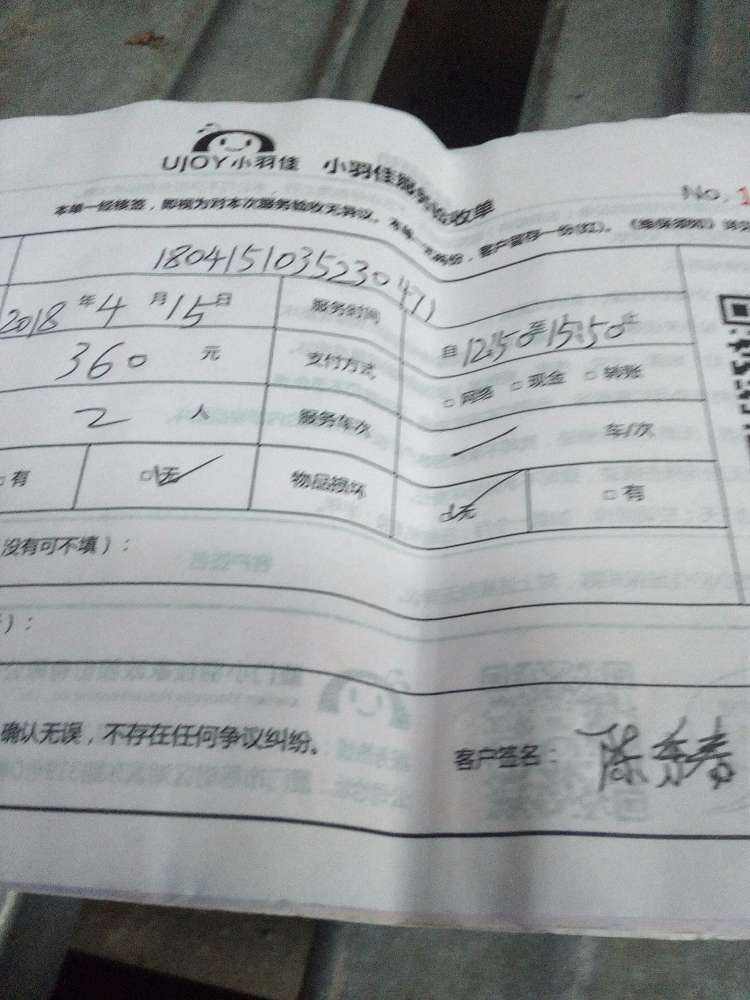 UJOY小羽佳 小羽佳服务验收单
No. 1
本单一经核签，即视为对本次服务验收无异议。
客户留存一份(红)。
2018年4月15日 服务时间 自12:50至15:50止
360元 支付方式 □网络 □现金 □转账
2人 服务车次 车/次
□有 □无 物品损坏 □无 □有
没有可不填）：
）：
确认无误，不存在任何争议纠纷。 客户签名：